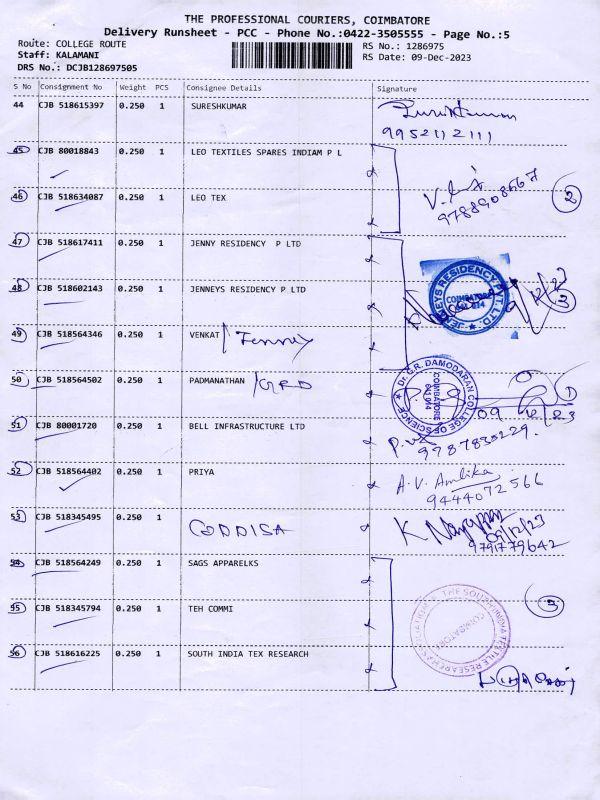 THE PROFESSIONAL COURIERS, COIMBATORE
Delivery Runsheet - PCC - Phone No.:0422-3505555 - Page No.:5
Route: COLLEGE ROUTE RS No.: 1286975
Staff: KALAMANI RS Date: 09-Dec-2023
DRS No.: DCJB128697505
S No Consignment No Weight PCS Consignee Details Signature
44 CJB 518615397 0.250 1 SURESHKUMAR
9952112111
45 CJB 80018843 0.250 1 LEO TEXTILES SPARES INDIAM P L
46 CJB 518634087 0.250 1 LEO TEX
2
47 CJB 518617411 0.250 1 JENNY RESIDENCY P LTD
48 CJB 518602143 0.250 1 JENNEYS RESIDENCY P LTD
JENNEYS RESIDENCY PVT. LTD.
COIMBATORE
3
49 CJB 518564346 0.250 1 VENKAT / Jenney
50 CJB 518564502 0.250 1 PADMANATHAN / GRD
Dr. G.R. DAMODARAN COLLEGE OF SCIENCE
COIMBATORE
641 014
51 CJB 80001720 0.250 1 BELL INFRASTRUCTURE LTD
9787830229.
52 CJB 518564402 0.250 1 PRIYA A.V. Ambika
9444072566
53 CJB 518345495 0.250 1 CODDISA
09/12/23
9791779642
54 CJB 518564249 0.250 1 SAGS APPARELKS
55 CJB 518345794 0.250 1 TEH COMMI
3
THE SOUTH INDIA TEXTILE RESEARCH ASSOCIATION
COIMBATORE
56 CJB 518616225 0.250 1 SOUTH INDIA TEX RESEARCH